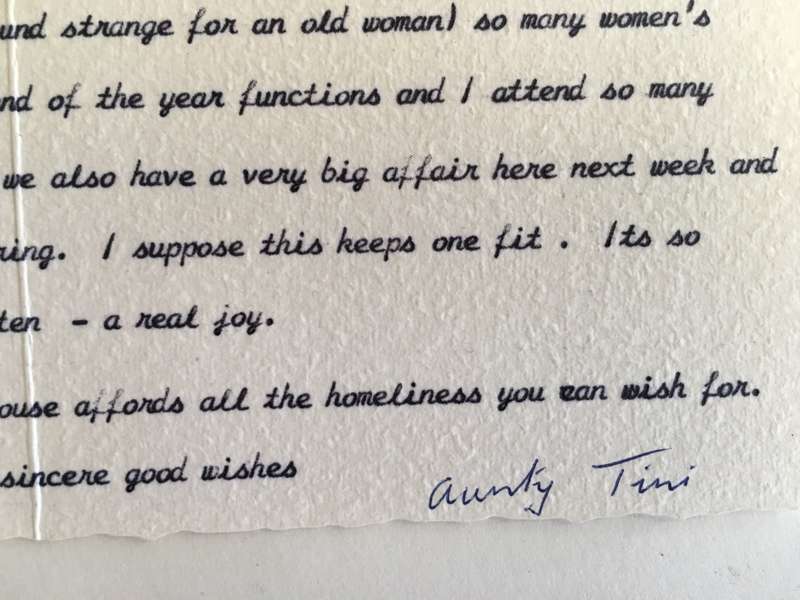 und strange for an old woman) so many women's
nd of the year functions and I attend so many
we also have a very big affair here next week and
ring. I suppose this keeps one fit . Its so
ten - a real joy.
ouse affords all the homeliness you can wish for.
sincere good wishes
Aunty Tini